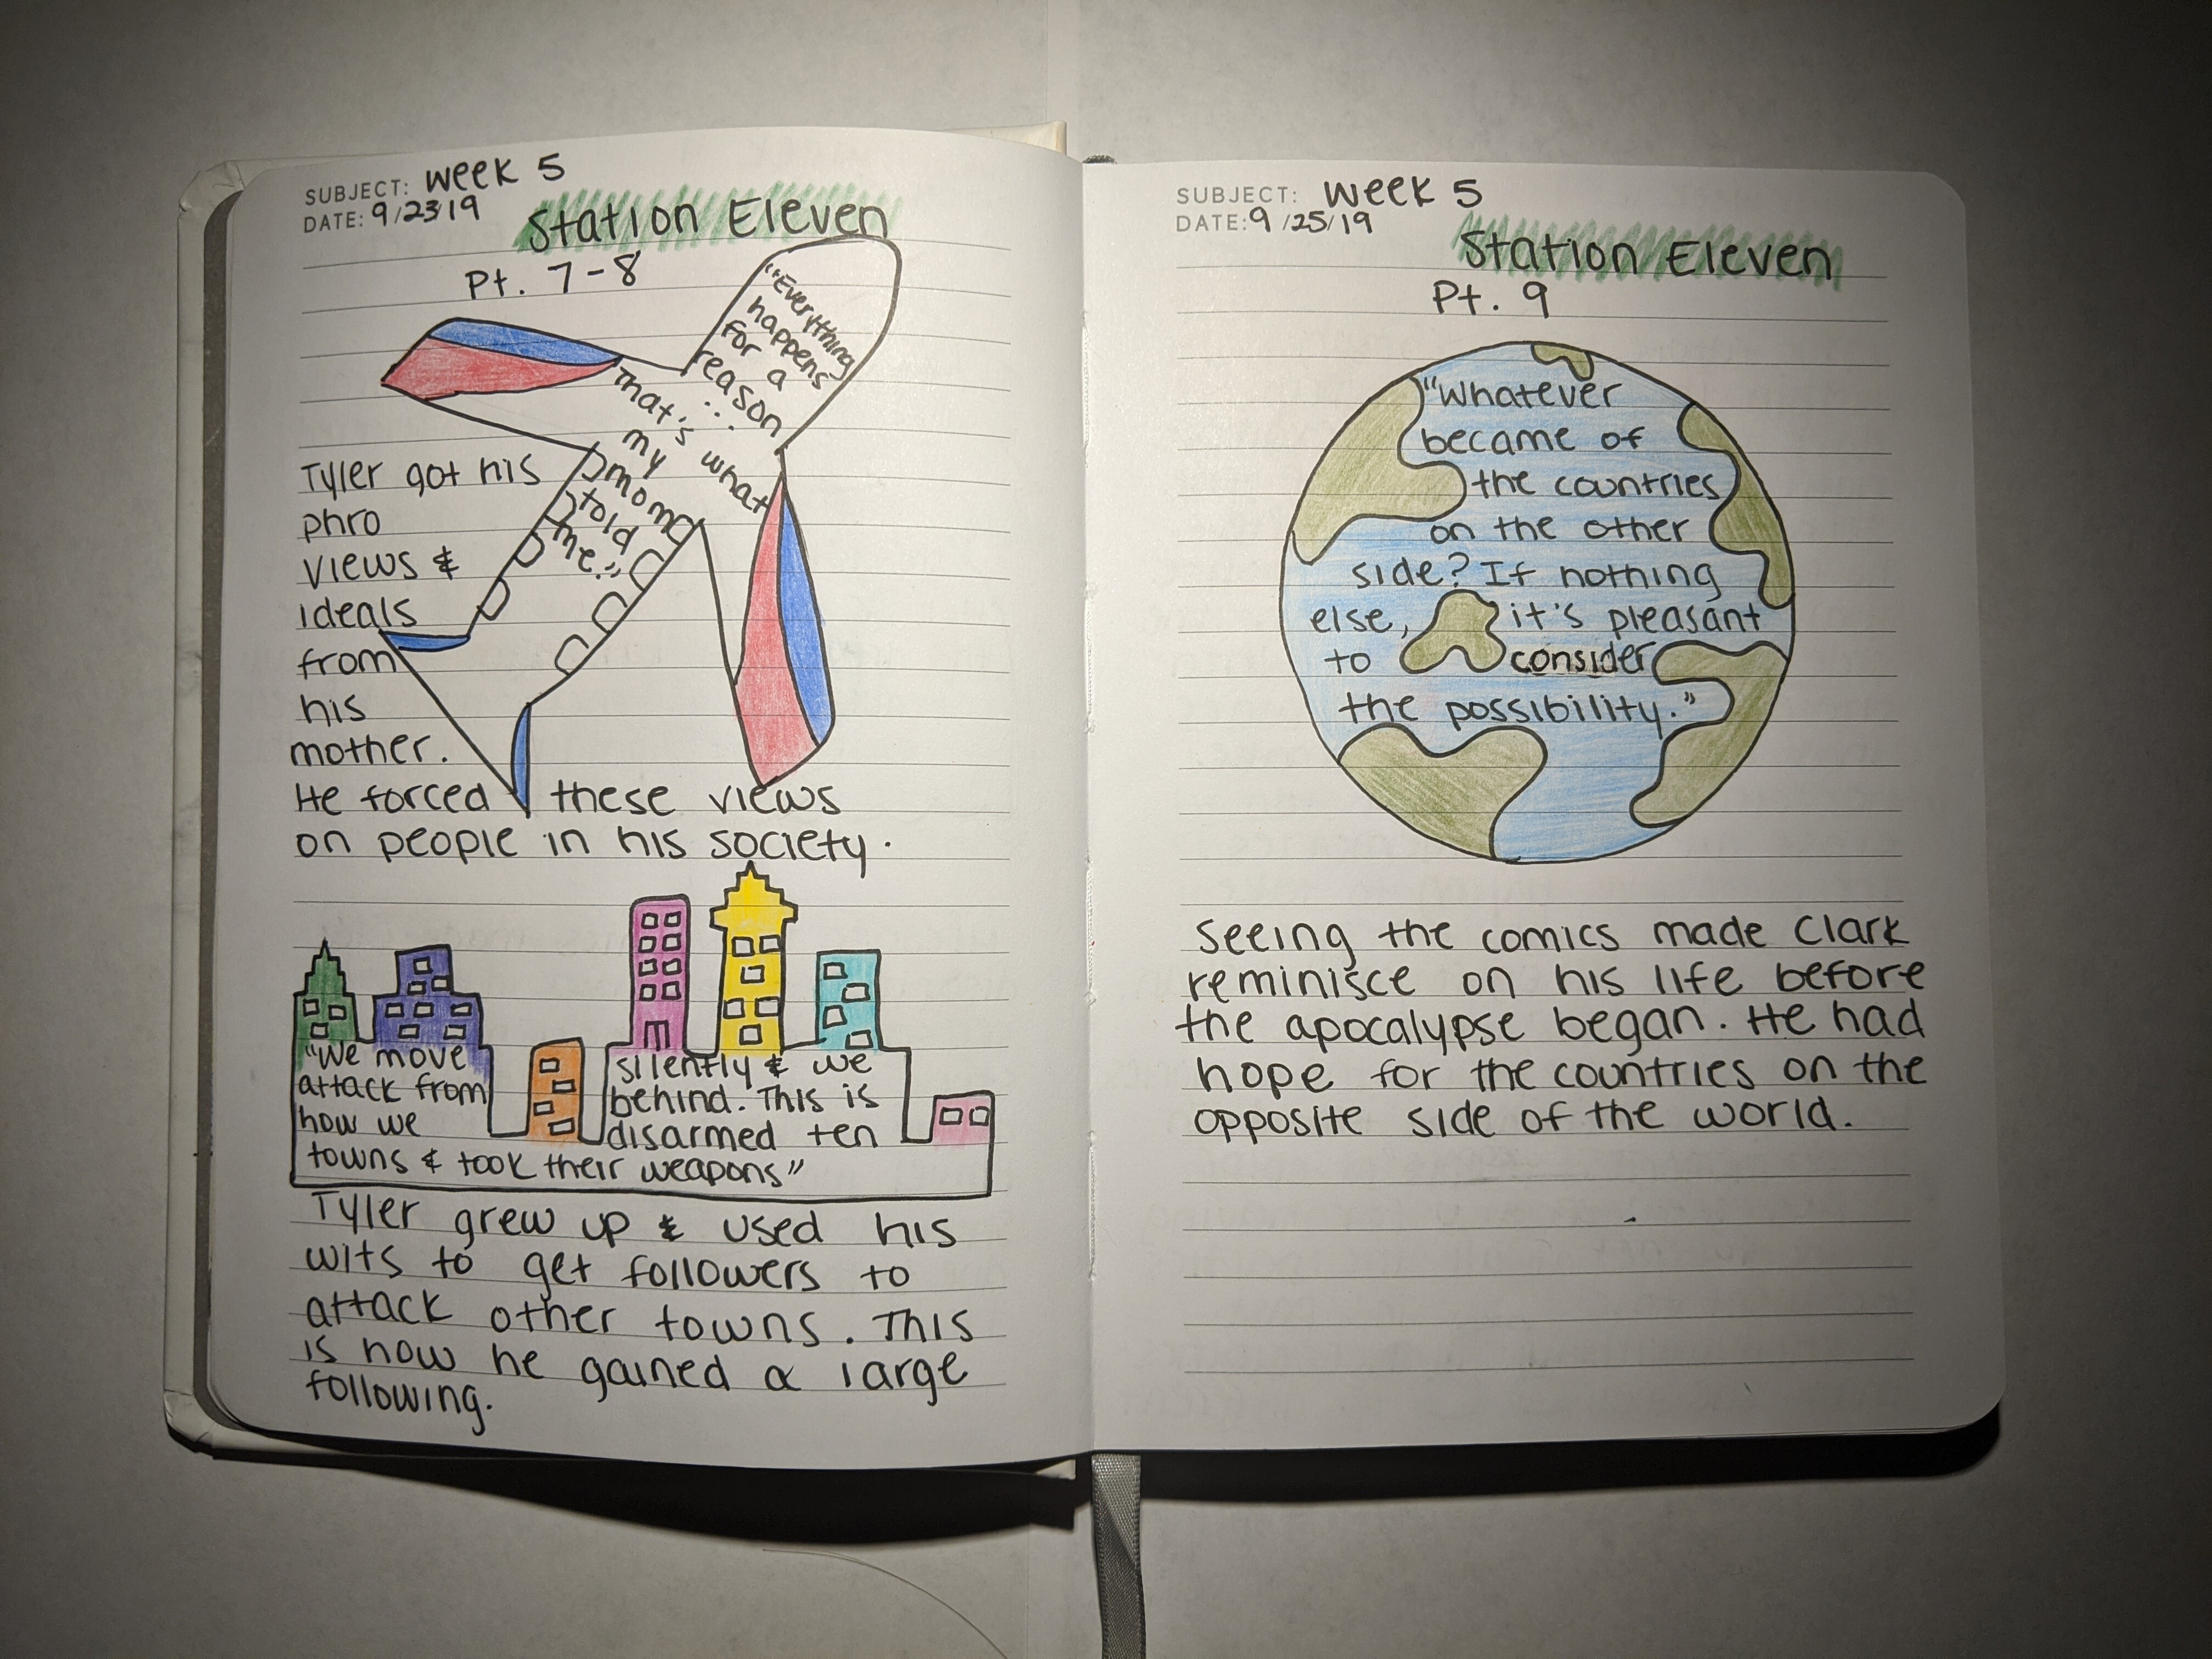 SUBJECT: Week 5
DATE: 9/23/19
Station Eleven
Pt. 7-8
"Everything
happens
for a
reason
...
That's what
my
mom
told
me."
Tyler got his
phro
views &
ideals
from
his
mother.
He forced these views
on people in his society.
"We move silently & we
attack from behind. This is
how we disarmed ten
towns & took their weapons"
Tyler grew up & used his
wits to get followers to
attack other towns. This
is how he gained a large
following.
SUBJECT: Week 5
DATE: 9/25/19
Station Eleven
Pt. 9
"Whatever
became of
the countries
on the other
side? If nothing
else, it's pleasant
to consider
the possibility."
Seeing the comics made Clark
reminisce on his life before
the apocalypse began. He had
hope for the countries on the
opposite side of the world.